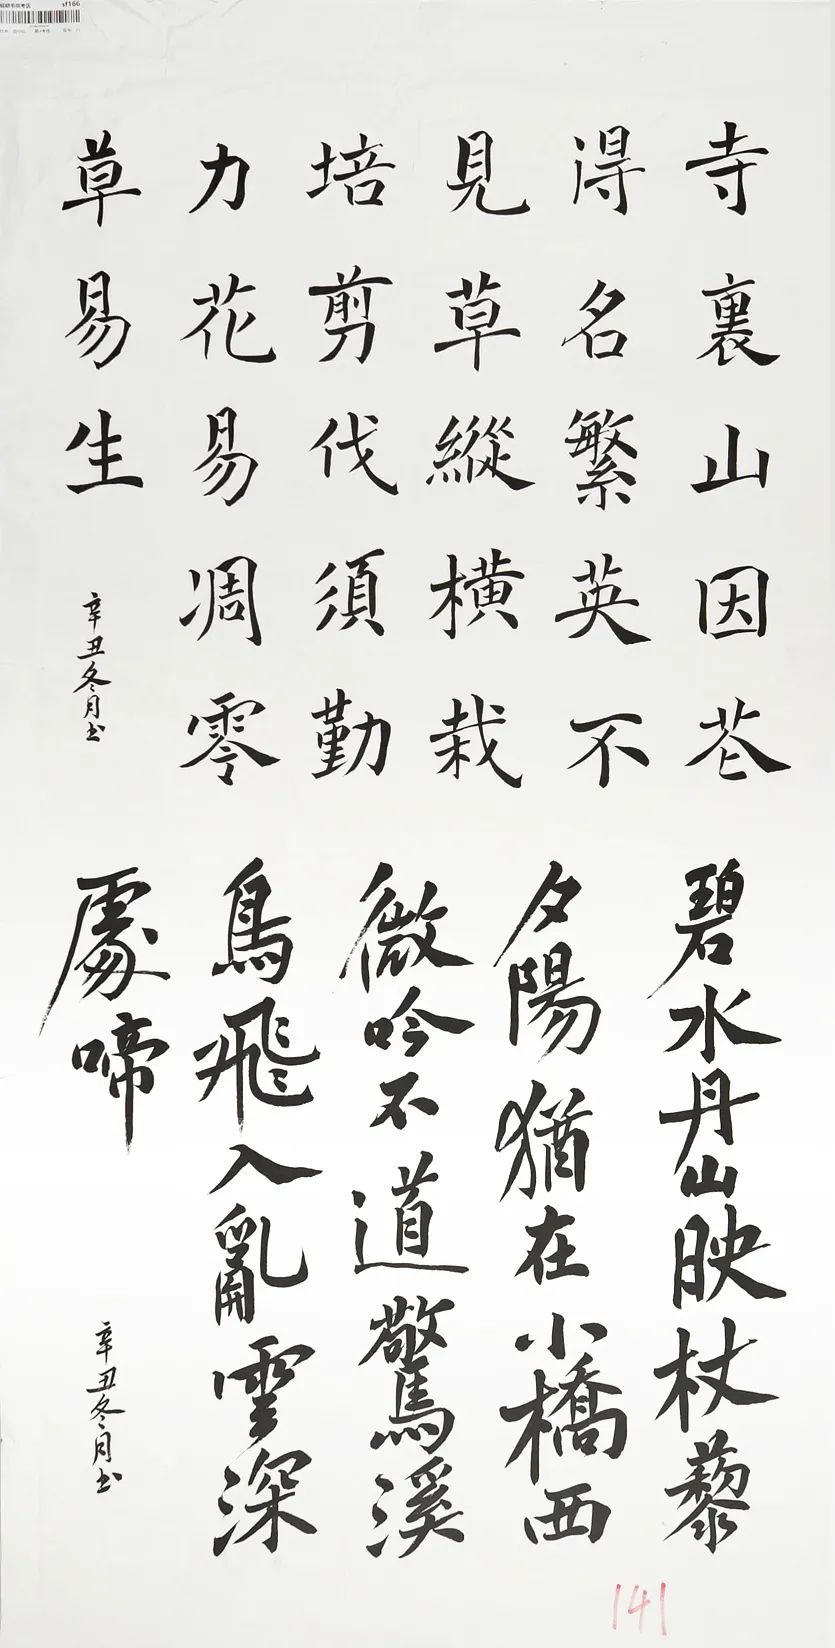 sf166
寺裏山因花
得名繁英不
見草縱橫栽
培剪伐須勤
力花易凋零
草易生
辛丑冬月书
碧水丹山映杖藜
夕陽猶在小橋西
微吟不道驚溪
鳥飛入亂雲深
處啼
辛丑冬月书
141